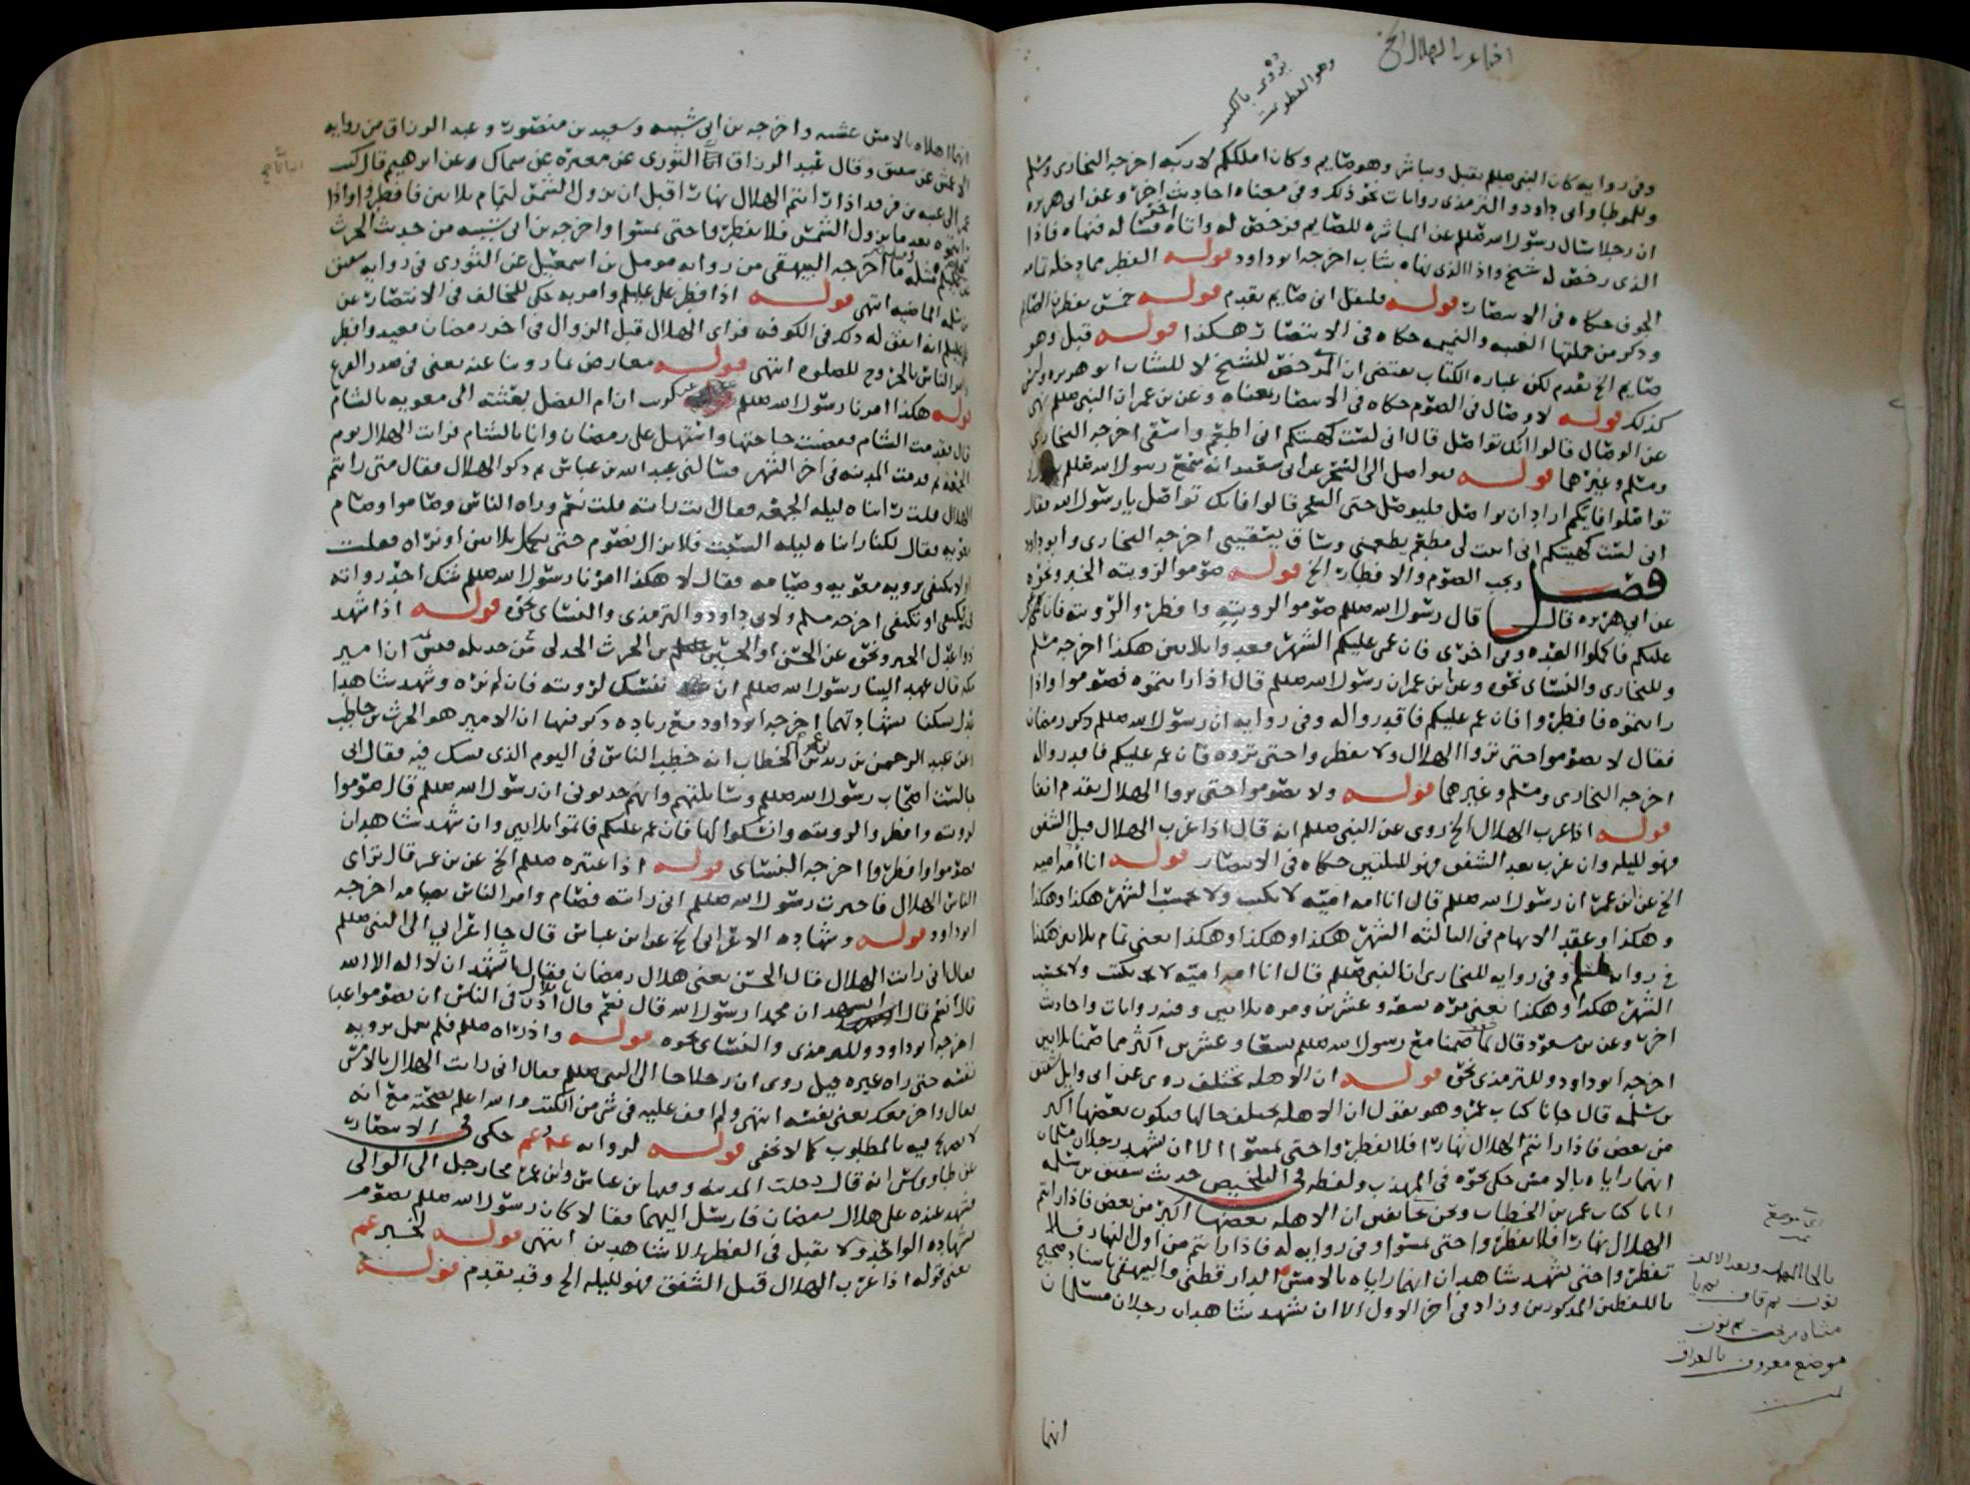 وفي رواية كان النبي صللم يقبل ويباشر وهو صايم وكان املككم لاربه اخرجه البخاري ومسلم
وللموطا وابي داود والترمذي روايات نحو ذلك وفي معناه احاديث اخر وعن ابي هريره
ان رجلا سال رسول الله صللم عن المباشره للصايم فرخص له واتاه اخر فساله فنهاه فاذا
الذي رخص له شيخ واذا الذي نهاه شاب اخرجه ابو داود قوله الفطر مما دخل
الجوف حكاه في الانتصار قوله فليقل اني صايم تقدم قوله خمس يفطرن الصايم
وذكر من جملتها الغيبه والنميمه حكاه في الانتصار هكذا قوله قبل وهو
صايم الخ تقدم لكن عباره الكتاب تقتضي ان المرخص للشيخ لا للشاب ابو هريره وليس
كذلك قوله لا وصال في الصوم حكاه في الانتصار بمعناه وعن بن عمر ان النبي صللم نهى
عن الوصال قالوا انك تواصل قال اني لست كهيتكم اني اطعم واسقى اخرجه البخاري
ومسلم وغيرهما قوله يواصل الى السحر عن ابي سعيد انه سمع رسول الله صللم يقول لا
تواصلوا فايكم اراد ان يواصل فليوصل حتى السحر قالوا فانك تواصل يا رسول الله فقال
اني لست كهيتكم اني ابيت لي مطعم يطعمني وساق يسقيني اخرجه البخاري وابو داود
فصل ويجب الصوم والافطار الخ قوله صوموا لرويته الخبر ونحوه
عن ابي هريره قال قال رسول الله صللم صوموا لرويته وافطروا لرويته فان غمي
عليكم فاكملوا العده وفي اخرى فان غمي عليكم الشهر فعدوا ثلاثين هكذا اخرجه مسلم
وللبخاري والنساي نحوه وعن بن عمر ان رسول الله صللم قال اذا رايتموه فصوموا واذا
رايتموه فافطروا فان غم عليكم فاقدروا له وفي روايه ان رسول الله صللم ذكر رمضان
فقال لا تصوموا حتى تروا الهلال ولا تفطروا حتى تروه فان غم عليكم فاقدروا له
اخرجه البخاري ومسلم وغيرهما قوله ولا تصوموا حتى تروا الهلال تقدم انفا
قوله اذا غرب الهلال الخ روي عن النبي صللم انه قال اذا غرب الهلال قبل الشفق
فهو لليله وان غرب بعد الشفق فهو لليلتين حكاه في الانتصار قوله انا امه اميه
الخ عن بن عمر ان رسول الله صللم قال انا امه اميه لا نكتب ولا نحسب الشهر هكذا وهكذا
وهكذا وعقد الابهام في الثالثه الشهر هكذا وهكذا وهكذا يعني تمام ثلاثين هكذا
في روايه مسلم وفي روايه للبخاري ان النبي صللم قال انا امه اميه لا نكتب ولا نحسب
الشهر هكذا وهكذا يعني مره تسعه وعشرين ومره ثلاثين وفيه روايات واحاديث
اخر وعن بن مسعود قال لما صمنا مع رسول الله صللم تسعا وعشرين اكثر مما صمنا ثلاثين
اخرجه ابو داود وللترمذي نحوه قوله ان الاهله تختلف روي عن ابي وايل شقيق
بن سلمه قال جانا كتاب عمر وهو يقول ان الاهله تختلف حالها فيكون بعضها اكبر
من بعض فاذا رايتم الهلال نهارا فلا تفطروا حتى تمسوا الا ان يشهد رجلان مسلمان
انهما راياه بالامس حكى نحوه في المهذب ولفظه في التلخيص حديث شقيق بن سلمه
اتانا كتاب عمر بن الخطاب ونحن بخانقين ان الاهله بعضها اكبر من بعض فاذا رايتم
الهلال نهارا فلا تفطروا حتى تمسوا وفي روايه له فاذا رايتم من اول النهار فلا
تفطروا حتى يشهد شاهدان انهما راياه بالامس الدار قطني والبيهقي باسناد صحيح
باللفظين المذكورين وزاد في اخر الاول الا ان يشهد شاهدان رجلان مسلمان
يروى بالكسر
بالخا المعجمه وبعد الالف
نون ثم قاف ثم يا
مثناه من تحت ثم نون
موضع معروف بالعراق
انهما
انهما اهلاه بالامس عشيه واخرجه بن ابي شيبه وسعيد بن منصور وعبد الرزاق من روايه
الاعمش عن شقيق وقال عبد الرزاق انا الثوري عن مغيره عن سماك وعن ابرهيم قال كتب
عمر الى عتبه بن فرقد اذا رايتم الهلال نهارا قبل ان تزول الشمس لتمام ثلاثين فافطروا واذا
رايتموه بعد ما تزول الشمس فلا تفطروا حتى تمسوا واخرجه بن ابي شيبه من حديث الحرث
ومثله ما اخرجه البيهقي من روايه مومل بن اسمعيل عن الثوري في روايه شقيق
بن سلمه الماضيه انتهى قوله اذا فطر علي عليلم وامر به حكى للمخالف في الانتصار عن
علي عليلم انه اتفق له ذلك في الكوفه فراى الهلال قبل الزوال في اخر رمضان فعيد وافطر
وامر الناس بالخروج للصلوه انتهى قوله معارض بما روينا عنه يعني في صدر الفرع
قوله هكذا امرنا رسول الله صللم عن كريب ان ام الفضل بعثته الى معويه بالشام
قال فقدمت الشام فقضيت حاجتها واستهل علي رمضان وانا بالشام فرايت الهلال يوم
الجمعه ثم قدمت المدينه في اخر الشهر فسالني عبد الله بن عباس ثم ذكر الهلال فقال متى رايتم
الهلال فقلت رايناه ليله الجمعه فقال انت رايته قلت نعم وراه الناس وصاموا وصام
معويه فقال لكنا رايناه ليله السبت فلا نزال نصوم حتى نكمل ثلاثين او نراه فقلت
او لا نكتفي برويه معويه وصيامه فقال لا هكذا امرنا رسول الله صللم شك احد رواته
في نكتفي او تكتفي اخرجه مسلم ولابي داود والترمذي والنساي نحوه قوله اذا شهد
ذوا عدل الخبر ونحوه عن الحسين بن الحرث الجدلي من جديله قيس ان امير
مكه قال عهد الينا رسول الله صللم ان ننسك لرويته فان لم نره وشهد شاهدا
عدل نسكنا بشهادتهما اخرجه ابو داود مع زياده ذكر فيها ان الامير هو الحرث بن حاطب
وعن عبد الرحمن بن زيد بن الخطاب انه خطب الناس في اليوم الذي يشك فيه فقال اني
جالست اصحاب رسول الله صللم وسايلتهم وانهم حدثوني ان رسول الله صللم قال صوموا
لرويته وافطروا لرويته وانسكوا لها فان غم عليكم فاتموا ثلاثين وان شهد شاهدان
فصوموا وافطروا اخرجه النساي قوله اذا اعتبره صللم الخ عن بن عمر قال تراى
الناس الهلال فاخبرت رسول الله صللم اني رايته فصام وامر الناس بصيامه اخرجه
ابو داود قوله وشهاده الاعرابي الخ عن ابن عباس قال جا اعرابي الى النبي صللم
فقال اني رايت الهلال قال الحسن يعني هلال رمضان فقال اتشهد ان لا اله الا الله
قال نعم قال اتشهد ان محمدا رسول الله قال نعم قال يا بلال اذن في الناس ان يصوموا غدا
اخرجه ابو داود وللترمذي والنساي نحوه قوله واذ راه صللم فلم يعمل برويه
نفسه حتى راه غيره قيل روي ان رجلا جا الى النبي صللم فقال اني رايت الهلال بالامس
فقال واخر معك يعني نفسه انتهى ولم اقف عليه في شي من الكتب والله اعلم بصحته مع انه
لا تصريح فيه بالمطلوب كما لا يخفى قوله لروايه عم وعم حكى في الانتصار
عن طاووس انه قال دخلت المدينه وفيها بن عباس وابن عمر فجا رجل الى الوالي
فشهد عنده على هلال رمضان فارسل اليهما فقالا كان رسول الله صللم يصوم
بشهاده الواحد ولا يقبل في الفطر الا شاهدين انتهى قوله لخبر عم
يعني قوله اذا غرب الهلال قبل الشفق فهو لليله الخ وقد تقدم قوله